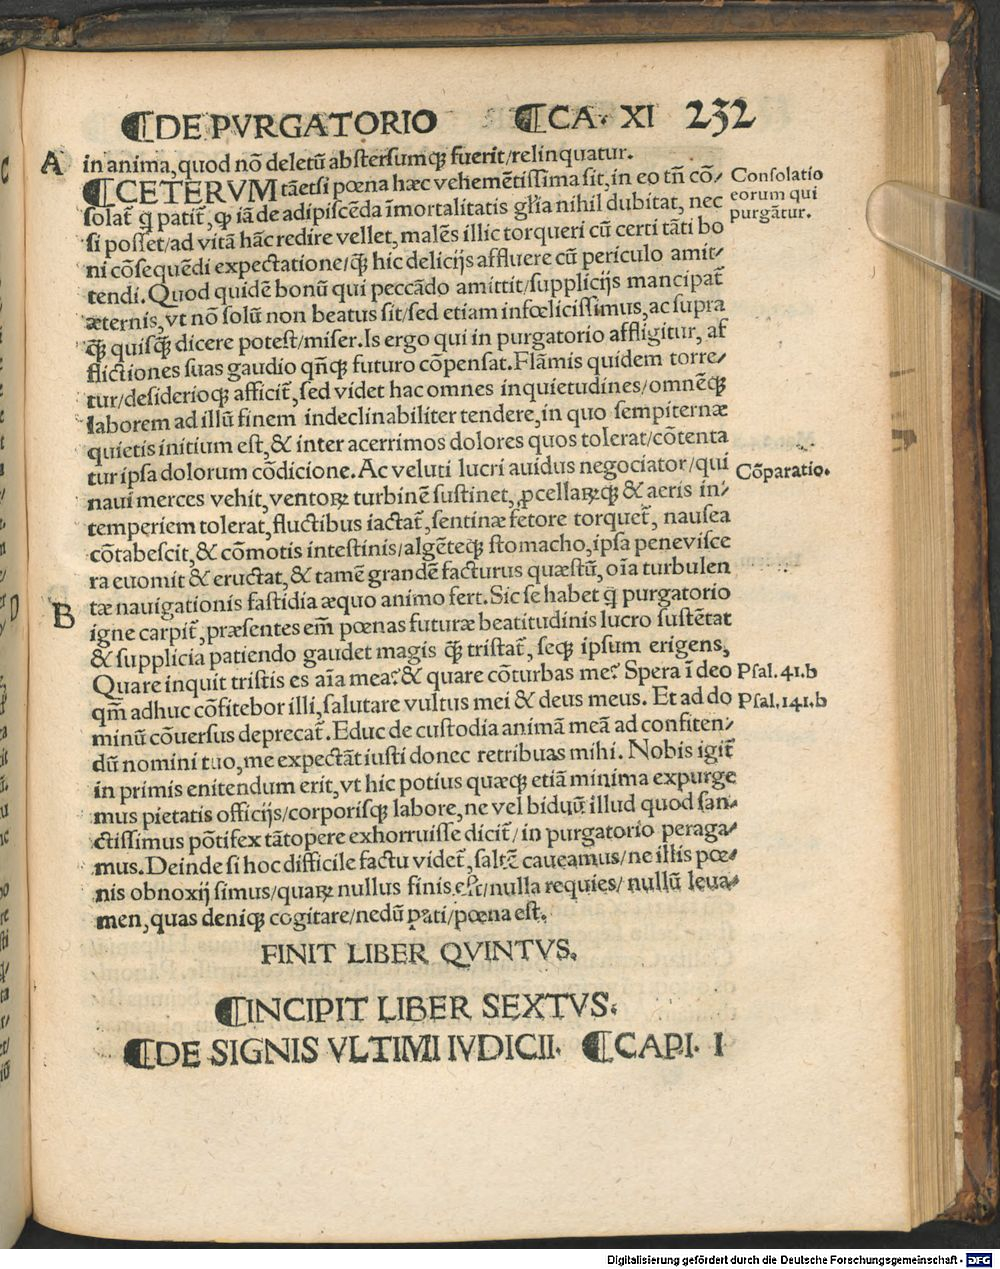 ¶DE PVRGATORIO ¶CA. XI 232
A in anima, quod nõ deletũ abstersumqꝫ fuerit/relinquatur.
¶CETERVM tãetsi pœna hæc vehemẽtissima sit, in eo tñ cõ⸗ Consolatio
solat̃ q̃ patit̃, ꝙ iã de adipiscẽda ĩmortalitatis gl̃ia nihil dubitat, nec eorum qui
si posset/ad vitã hãc redire vellet, malẽs illic torqueri cũ certi tãti bo purgãtur.
ni cõsequẽdi expectatione/q̃ꝫ hic delicijs affluere cũ periculo amit⸗
tendi. Quod quidẽ bonũ qui peccãdo amittit/supplicijs mancipat̃
æternis, vt nõ solũ non beatus sit/sed etiam infœlicissimus, ac supra
q̃ꝫ quisq̃ꝫ dicere potest/miser. Is ergo qui in purgatorio affligitur, af
flictiones suas gaudio qñqꝫ futuro cõpensat. Flãmis quidem torre⸗
tur/desiderioqꝫ afficit̃, sed videt hac omnes inquietudines/omnẽqꝫ
laborem ad illũ finem indeclinabiliter tendere, in quo sempiternæ
quietis initium est, & inter acerrimos dolores quos tolerat/cõtenta
tur ipsa dolorum cõdicione. Ac veluti lucri auidus negociator/qui Cõparatio.
naui merces vehit, ventoꝝ turbinẽ sustinet, ꝓcellaꝝqꝫ & aeris in⸗
temperiem tolerat, fluctibus iactat̃, sentinæ fetore torquet̃, nausea
cõtabescit, & cõmotis intestinis/algẽteqꝫ stomacho, ipsa pene visce
ra euomit & eructat, & tamẽ grandẽ facturus quæstũ, oĩa turbulen
B tæ nauigationis fastidia æquo animo fert. Sic se habet q̃ purgatorio
igne carpit̃, præsentes em̃ pœnas futuræ beatitudinis lucro sustẽtat
& supplicia patiendo gaudet magis q̃ꝫ tristat̃, seqꝫ ipsum erigens,
Quare inquit tristis es aĩa mea? & quare cõturbas me? Spera ĩ deo Psal.41.b
qm̃ adhuc cõfitebor illi, salutare vultus mei & deus meus. Et ad do Psal.141.b
minũ cõuersus deprecat̃. Educ de custodia animã meã ad confiten⸗
dũ nomini tuo, me expectãt iusti donec retribuas mihi. Nobis igit̃
in primis enitendum erit, vt hic potius quæqꝫ etiã minima expurge
mus pietatis officijs/corporisqꝫ labore, ne vel biduũ illud quod san⸗
ctissimus põtifex tãtopere exhorruisse dicit̃/in purgatorio peraga⸗
mus. Deinde si hoc difficile factu videt̃, saltẽ caueamus/ne illis pœ⸗
nis obnoxij simus/quaꝝ nullus finis est/nulla requies/nullũ leua⸗
men, quas deniqꝫ cogitare/nedũ pati/pœna est.
FINIT LIBER QVINTVS.
¶INCIPIT LIBER SEXTVS.
¶DE SIGNIS VLTIMI IVDICII. ¶CAPI. I
Digitalisierung gefördert durch die Deutsche Forschungsgemeinschaft - DFG